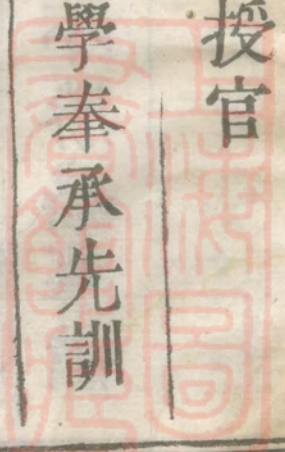 授官
學奉承先訓